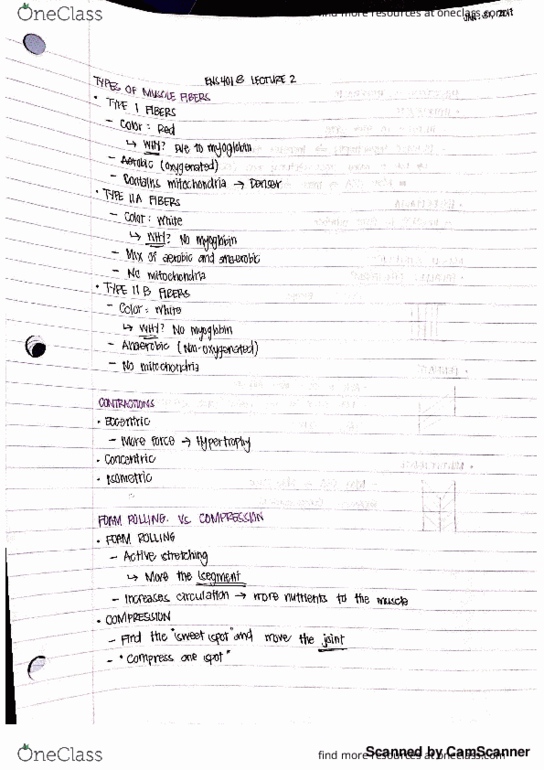 OneClass
find more resources at oneclass.com
ENS 401B LECTURE 2
TYPES OF MUSCLE FIBERS
• TYPE I FIBERS
- Color: Red
↳ WHY? Due to myoglobin
- Aerobic (oxygenated)
- Contains mitochondria → Denser
• TYPE IIA FIBERS
- Color: White
↳ WHY? No myoglobin
- Mix of aerobic and anaerobic
- No mitochondria
• TYPE IIB FIBERS
- Color: White
↳ WHY? No myoglobin
- Anaerobic (Non-oxygenated)
- No mitochondria
CONTRACTIONS
• Eccentric
- More force → Hypertrophy
• Concentric
• Isometric
FOAM ROLLING VS COMPRESSION
• FOAM ROLLING
- Active stretching
↳ Move the segment
- Increases circulation → more nutrients to the muscle
• COMPRESSION
- Find the "sweet spot" and move the joint
- "Compress one spot"
OneClass
find more resources at oneclass.com
Scanned by CamScanner